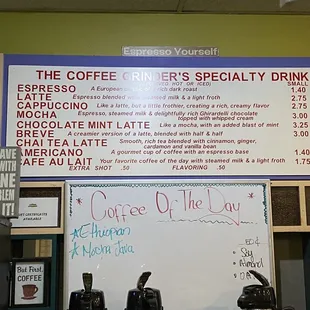 Espresso Yourself
THE COFFEE GRINDER'S SPECIALTY DRINK
SMALL
ESPRESSO A European dark roast 1.40
LATTE Espresso blended with steamed milk & a light froth 2.75
CAPPUCCINO Like a latte, but a little frothier, creating a rich, creamy flavor 2.75
MOCHA Espresso, steamed milk & delightfully rich Ghirardelli chocolate 3.00
topped with whipped cream
CHOCOLATE MINT LATTE Like a mocha, with an added blast of mint 3.25
BREVE A creamier version of a latte, blended with half & half 3.00
CHAI TEA LATTE Smooth, rich tea blended with cinnamon, ginger,
cardomon and vanilla bean
AMERICANO A gourmet cup of coffee with an espresso base 1.40
CAFE AU LAIT Your favorite coffee of the day with steamed milk & a light froth 1.75
EXTRA SHOT .50 FLAVORING .50
Coffee Of The Day
Ethiopian
Mocha Java
Soy
Almond
But First,
COFFEE